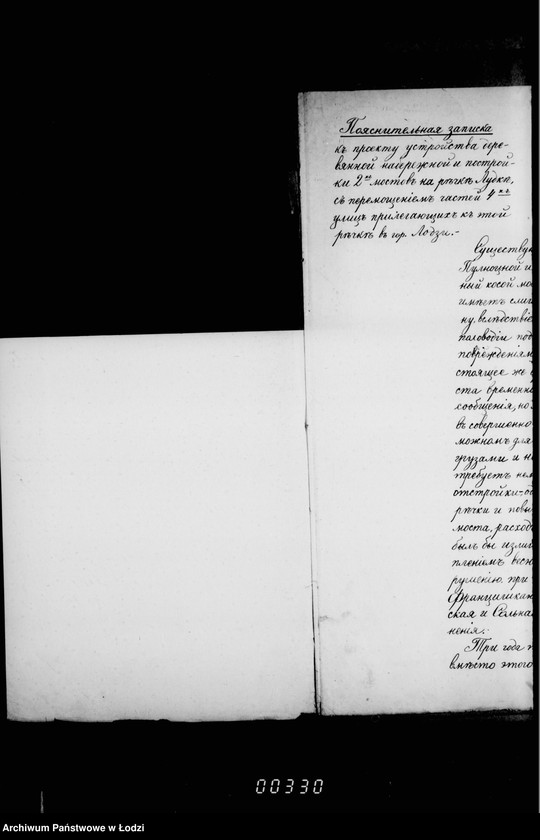 Пояснительная записка
къ проекту устройства дере-
вянной набережной и построй-
ки 2хъ мостовъ на рѣчкѣ Лудкѣ,
съ перемощеніемъ частей 4хъ
улицъ прилегающихъ къ этой
рѣчкѣ въ гор. Лодзи.-
Существую
Пулноцной и
ный косой мо
имѣетъ слиш
ну, вслѣдствіе
половодіи под
поврежденіям
стоящее же
ста временно
сообщенія, но
въ совершенно
можномъ для
грузами и не
требуетъ нем
отстройки-
рѣчки и повы
моста, расход
былъ бы излиш
пленіемъ весн
рушенію при
Францишкан
ская и Сольна
ненія.-
Три года
вмѣсто этого
00330
Archiwum Państwowe w Łodzi